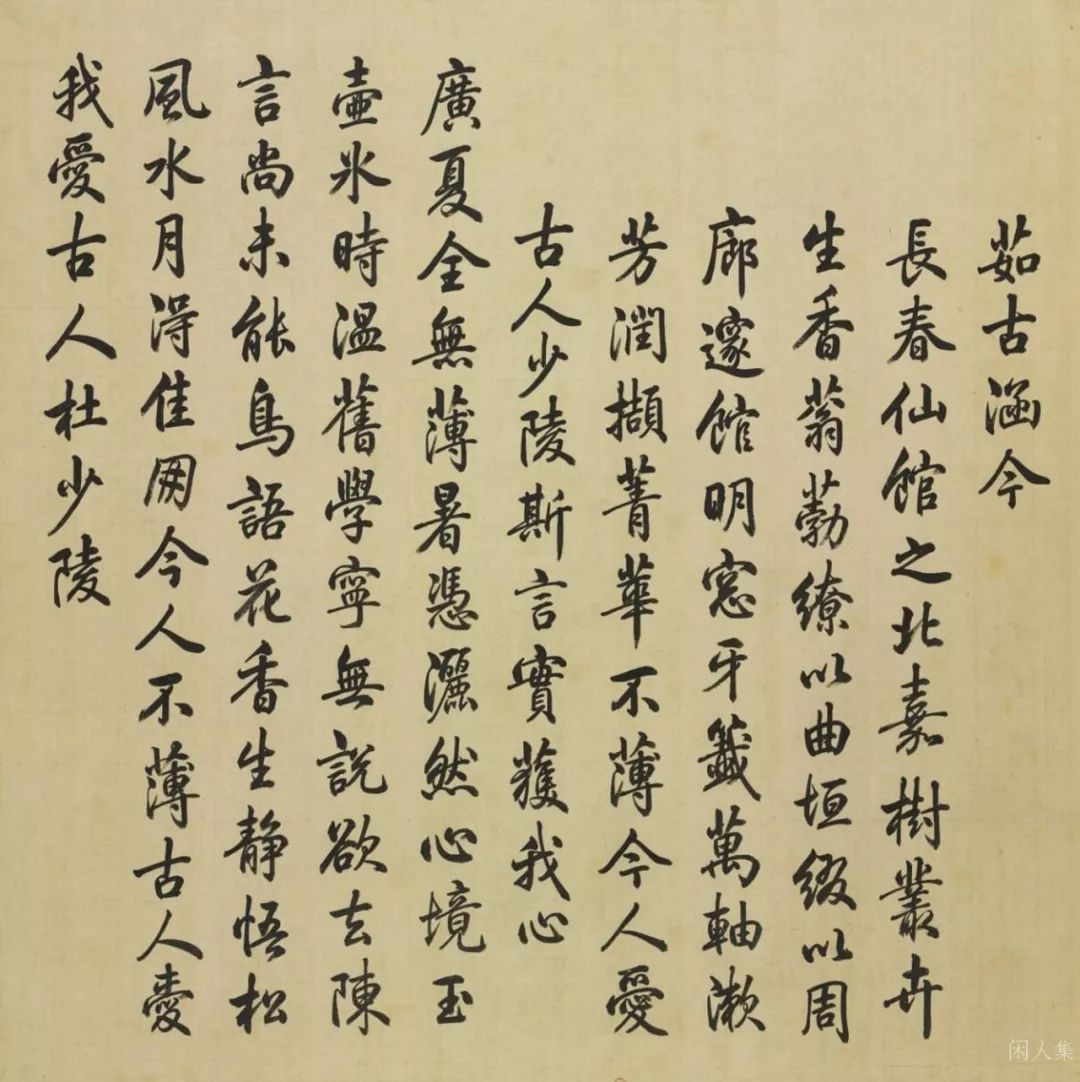 茹古涵今
長春仙館之北嘉樹叢卉
生香蓊葧繚以曲垣綴以周
廊邃館明窓牙籤萬軸漱
芳潤擷菁華不薄今人愛
古人少陵斯言實獲我心
廣夏全無薄暑憑灑然心境玉
壺氷時溫舊學寧無說欲去陳
言尚未能鳥語花香生靜悟松
風水月淂佳朋今人不薄古人愛
我愛古人杜少陵
闲人集